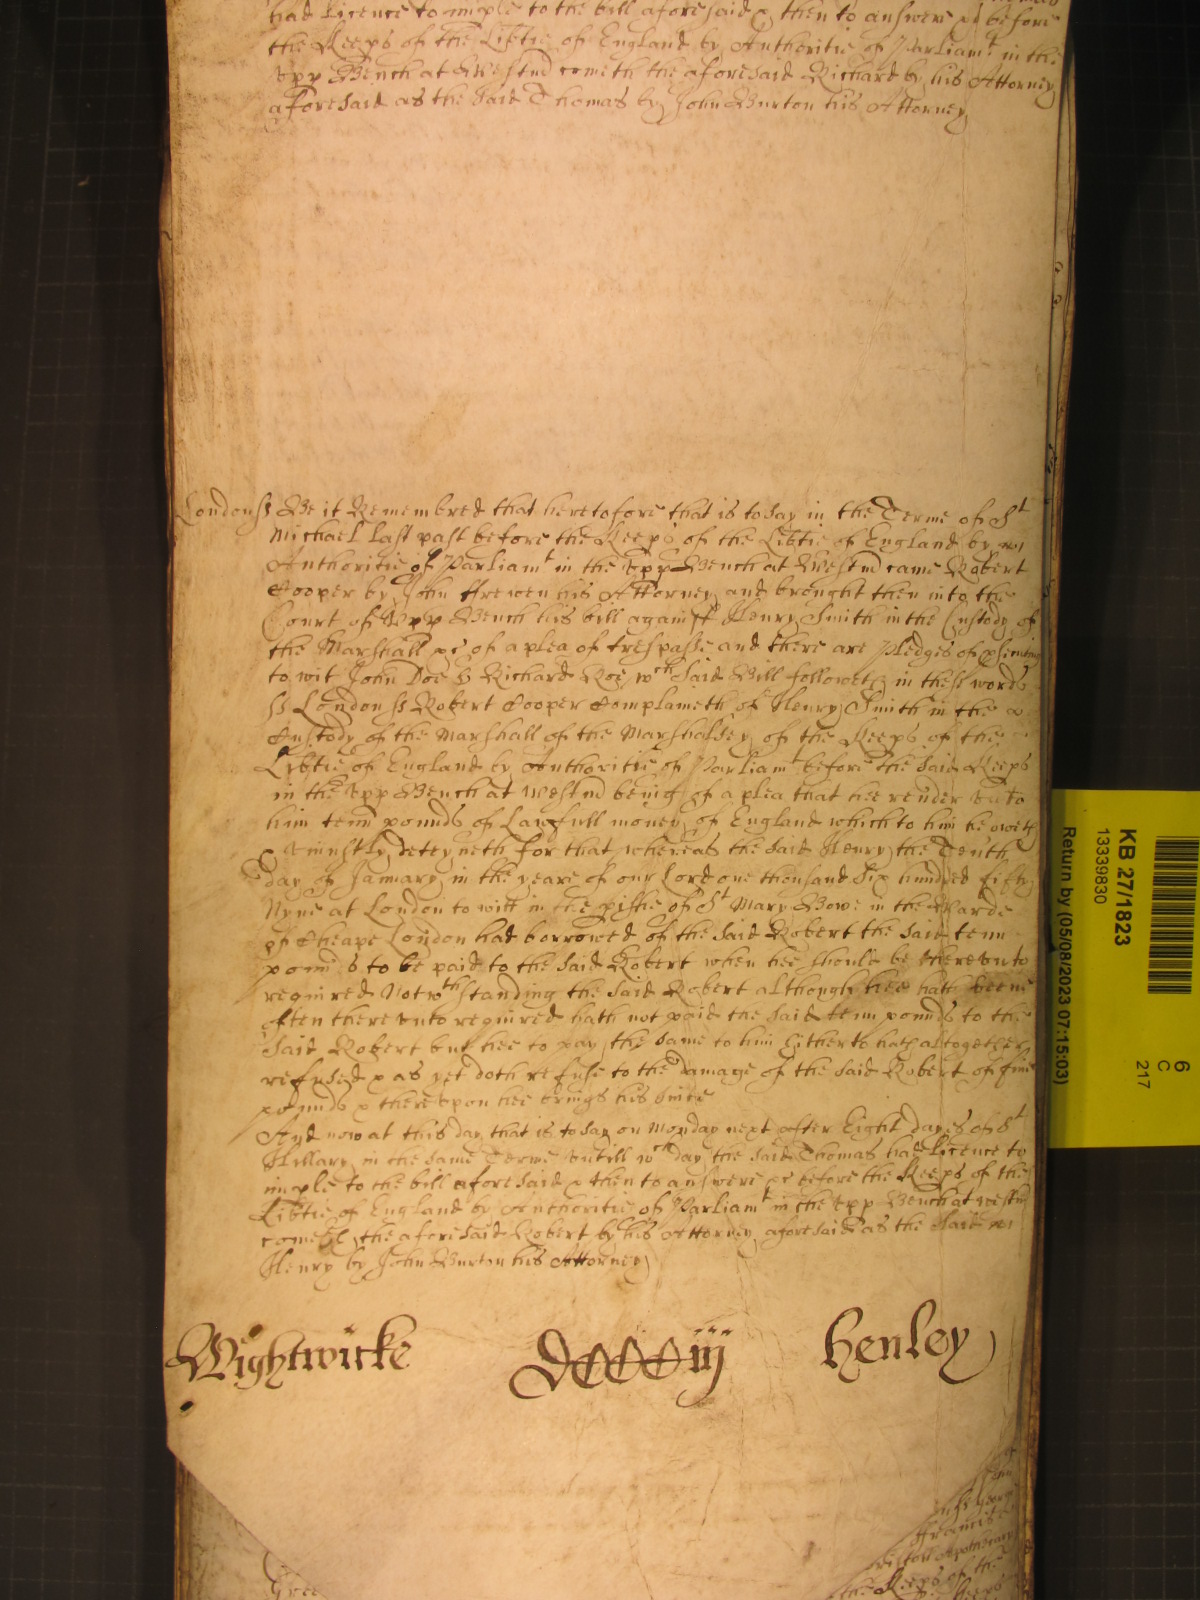 had Licence to imple to the bill aforesaid & then to answere &c before
the Keeps of the Libtie of England by Authoritie of Parliamt in the
upp Bench at Westmd cometh the aforesaid Richard by his Attorney
aforesaid as the said Thomas by John Burton his Attorney
London ss Be it Remembred that heretofore that is to say in the Terme of St
Michael last past before the Keeps of the Libtie of England by
Authoritie of Parliamt in the upp Bench at Westmd came Robert
Cooper by John Arewen his Attorney and brought then into the
Court of upp Bench his bill against Henry Smith in the Custody of
the Marshall &c of a plea of trespasse and there are pledges of psecuting
to wit John Doe & Richard Roe wch said Bill followeth in these words
ss London ss Robert Cooper Complaineth of Henry Smith in the
Custody of the Marshall of the Marshalsey of the Keeps of the
Libtie of England by Authoritie of Parliamt before the said Keeps
in the upp Bench at Westmd being of a plea that hee render unto
him tenn pounds of Lawfull money of England which to him he oweth
& uniustly deteyneth for that whereas the said Henry the Tenth
day of January in the yeare of our Lord one thousand six hundred fifty
Nyne at London to witt in the pishe of St Mary Bowe in the Warde
of Cheape London had borrowed of the said Robert the said tenn
pounds to be paid to the said Robert when hee should be thereunto
required Notwthstanding the said Robert although hee hath beene
often there unto required hath not paid the said tenn pounds to the
said Robert but hee to pay the same to him hitherto hath altogether
refused & as yet doth refuse to the damage of the said Robert of five
pounds & thereupon hee brings his suite
And now at this day that is to say on Monday next after Eight dayes of St
Hillary in the same Terme untill wch day the said Thomas had Licence to
imple to the bill aforesaid & then to answere &c before the Keeps of the
Libtie of England by Authoritie of Parliamt in the upp Bench at Westm
cometh the aforesaid Robert by his Attorney aforesaid as the said
Henry by John Burton his Attorney
Wightwicke DCCCiij Henley
KB 27/1823
13339830
Return by (05/08/2023 07:15:03)
6
C
217